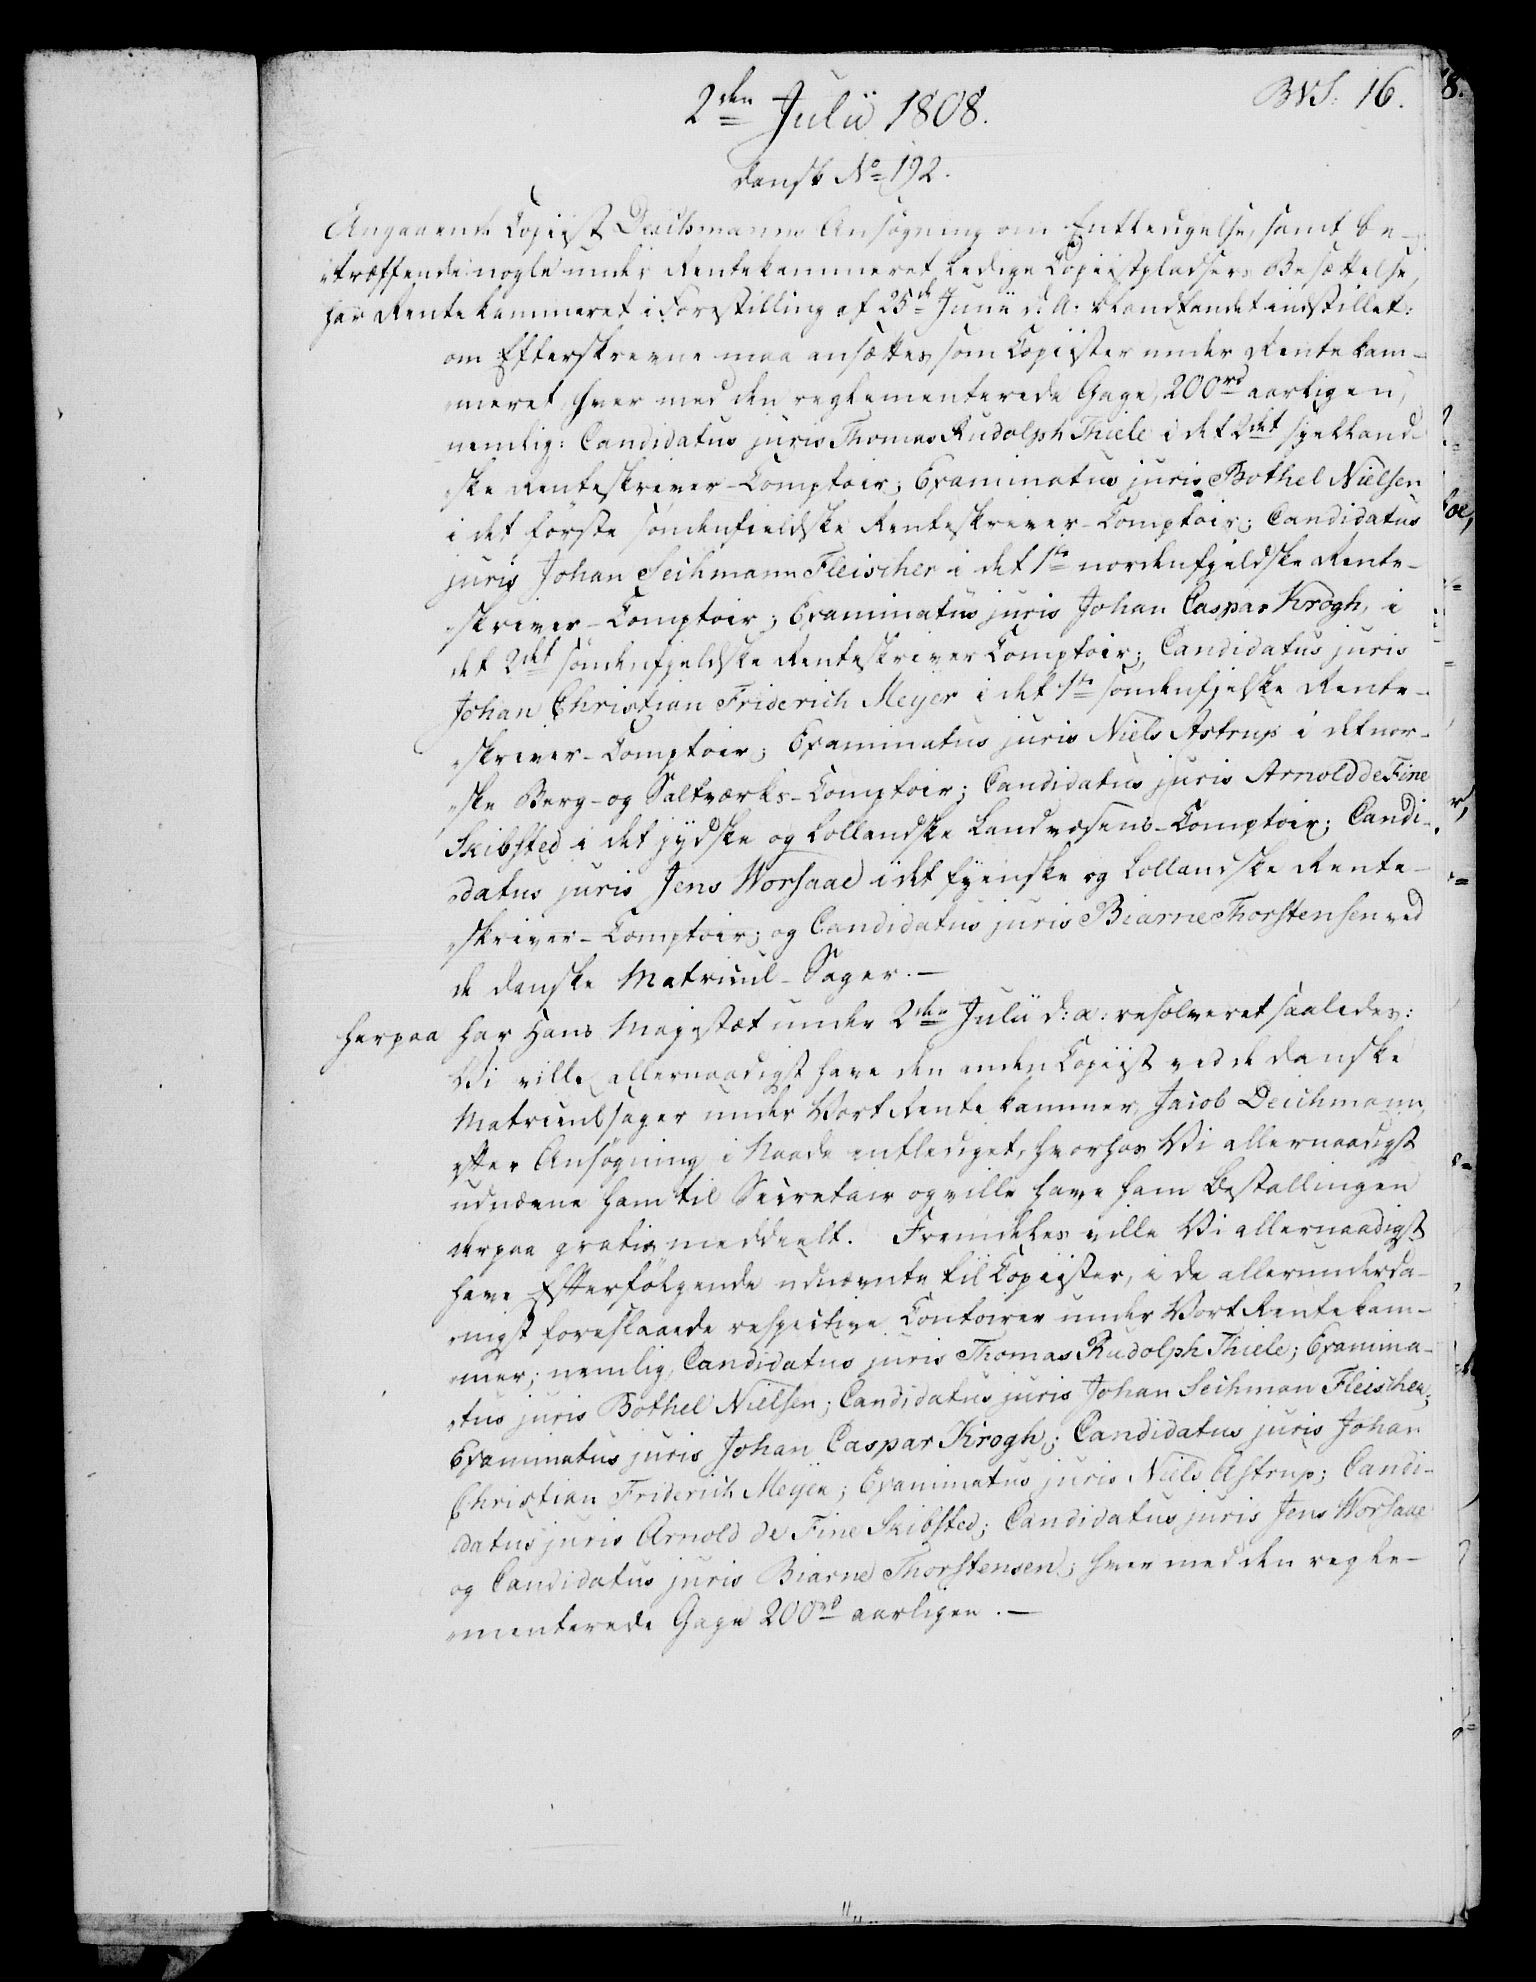 2den Julii 1808.
BVS: 16.
dansk No 192.
Angaaende Copiist Deichmanns Ansøgning om Entledigelse, samt be-
"træffende nogle under Rentekammeret ledige Copiistpladsers Besættelse,
har Rentekammeret i Forestilling af 25de Junii d: A: blandt andet indstillet:
om Efterskrevne maa ansættes som Copiister under Rentekam-
"meret, hver med den reglementerede Gage, 200rd aarligen,
nemlig: Candidatus juris Thomas Rudolph Thiele i det 2det sjelland-
"ske Renteskriver-Comptoir; Examinatus juris Bothel Nielsen
i det første søndenfieldske Renteskriver-Comptoir; Candidatus
juris Johan Seihmann Fleischer i det 1te nordenfjeldske Rente-
"skriver-Comptoir; Examinatus juris Johan Caspar Krogh, i
det 2det søndenfjeldske Renteskriver Comptoir; Candidatus juris
Johan Christian Friderich Meyer i det 1te søndenfjelske Rente-
"skriver-Comptoir; Examinatus juris Niels Astrup i det nor-
"ske Berg- og Saltværks-Comptoir; Candidatus juris Arnold de Fine
Skibsted i det jydske og Lollandske Landvæsens-Comptoir; Candi-
"datus juris Jens Worsaae i det fyenske og Lollandske Rente-
"skriver-Comptoir; og Candidatus juris Biarne Thorstensen ved
de danske Matricul-Sager.-
Herpaa har Hans Majestæt under 2den Julii d: a: resolveret saaledes:
Vi ville allernaadigst have den anden Copiist ved de danske
Matriculsager under Vort Rentekammer, Jacob Deichmann,
efter Ansøgning i Naade entlediget, hvorhos Vi allernaadigst
udnævne ham til Secretair og ville have ham Bestallingen
derpaa gratis meddeelt. Fremdeles ville Vi allernaadigst
have Efterfølgende udnævnte til Copiister, i de allerunderda-
"nigst foreslaaede respective Contoirer under Vort Rentekam-
"mer; nemlig, Candidatus juris Thomas Rudolph Thiele; Examina-
"tus juris Bothel Nielsen; Candidatus juris Johan Seihman Fleischer;
Examinatus juris Johan Caspar Krogh; Candidatus juris Johan
Christian Friderich Meyer; Examinatus juris Niels Astrup; Candi-
"datus juris Arnold de Fine Skibsted; Candidatus juris Jens Worsaae
og Candidatus juris Biarne Thorstensen; hver med den regle-
"menterede Gage 200rd aarligen.-